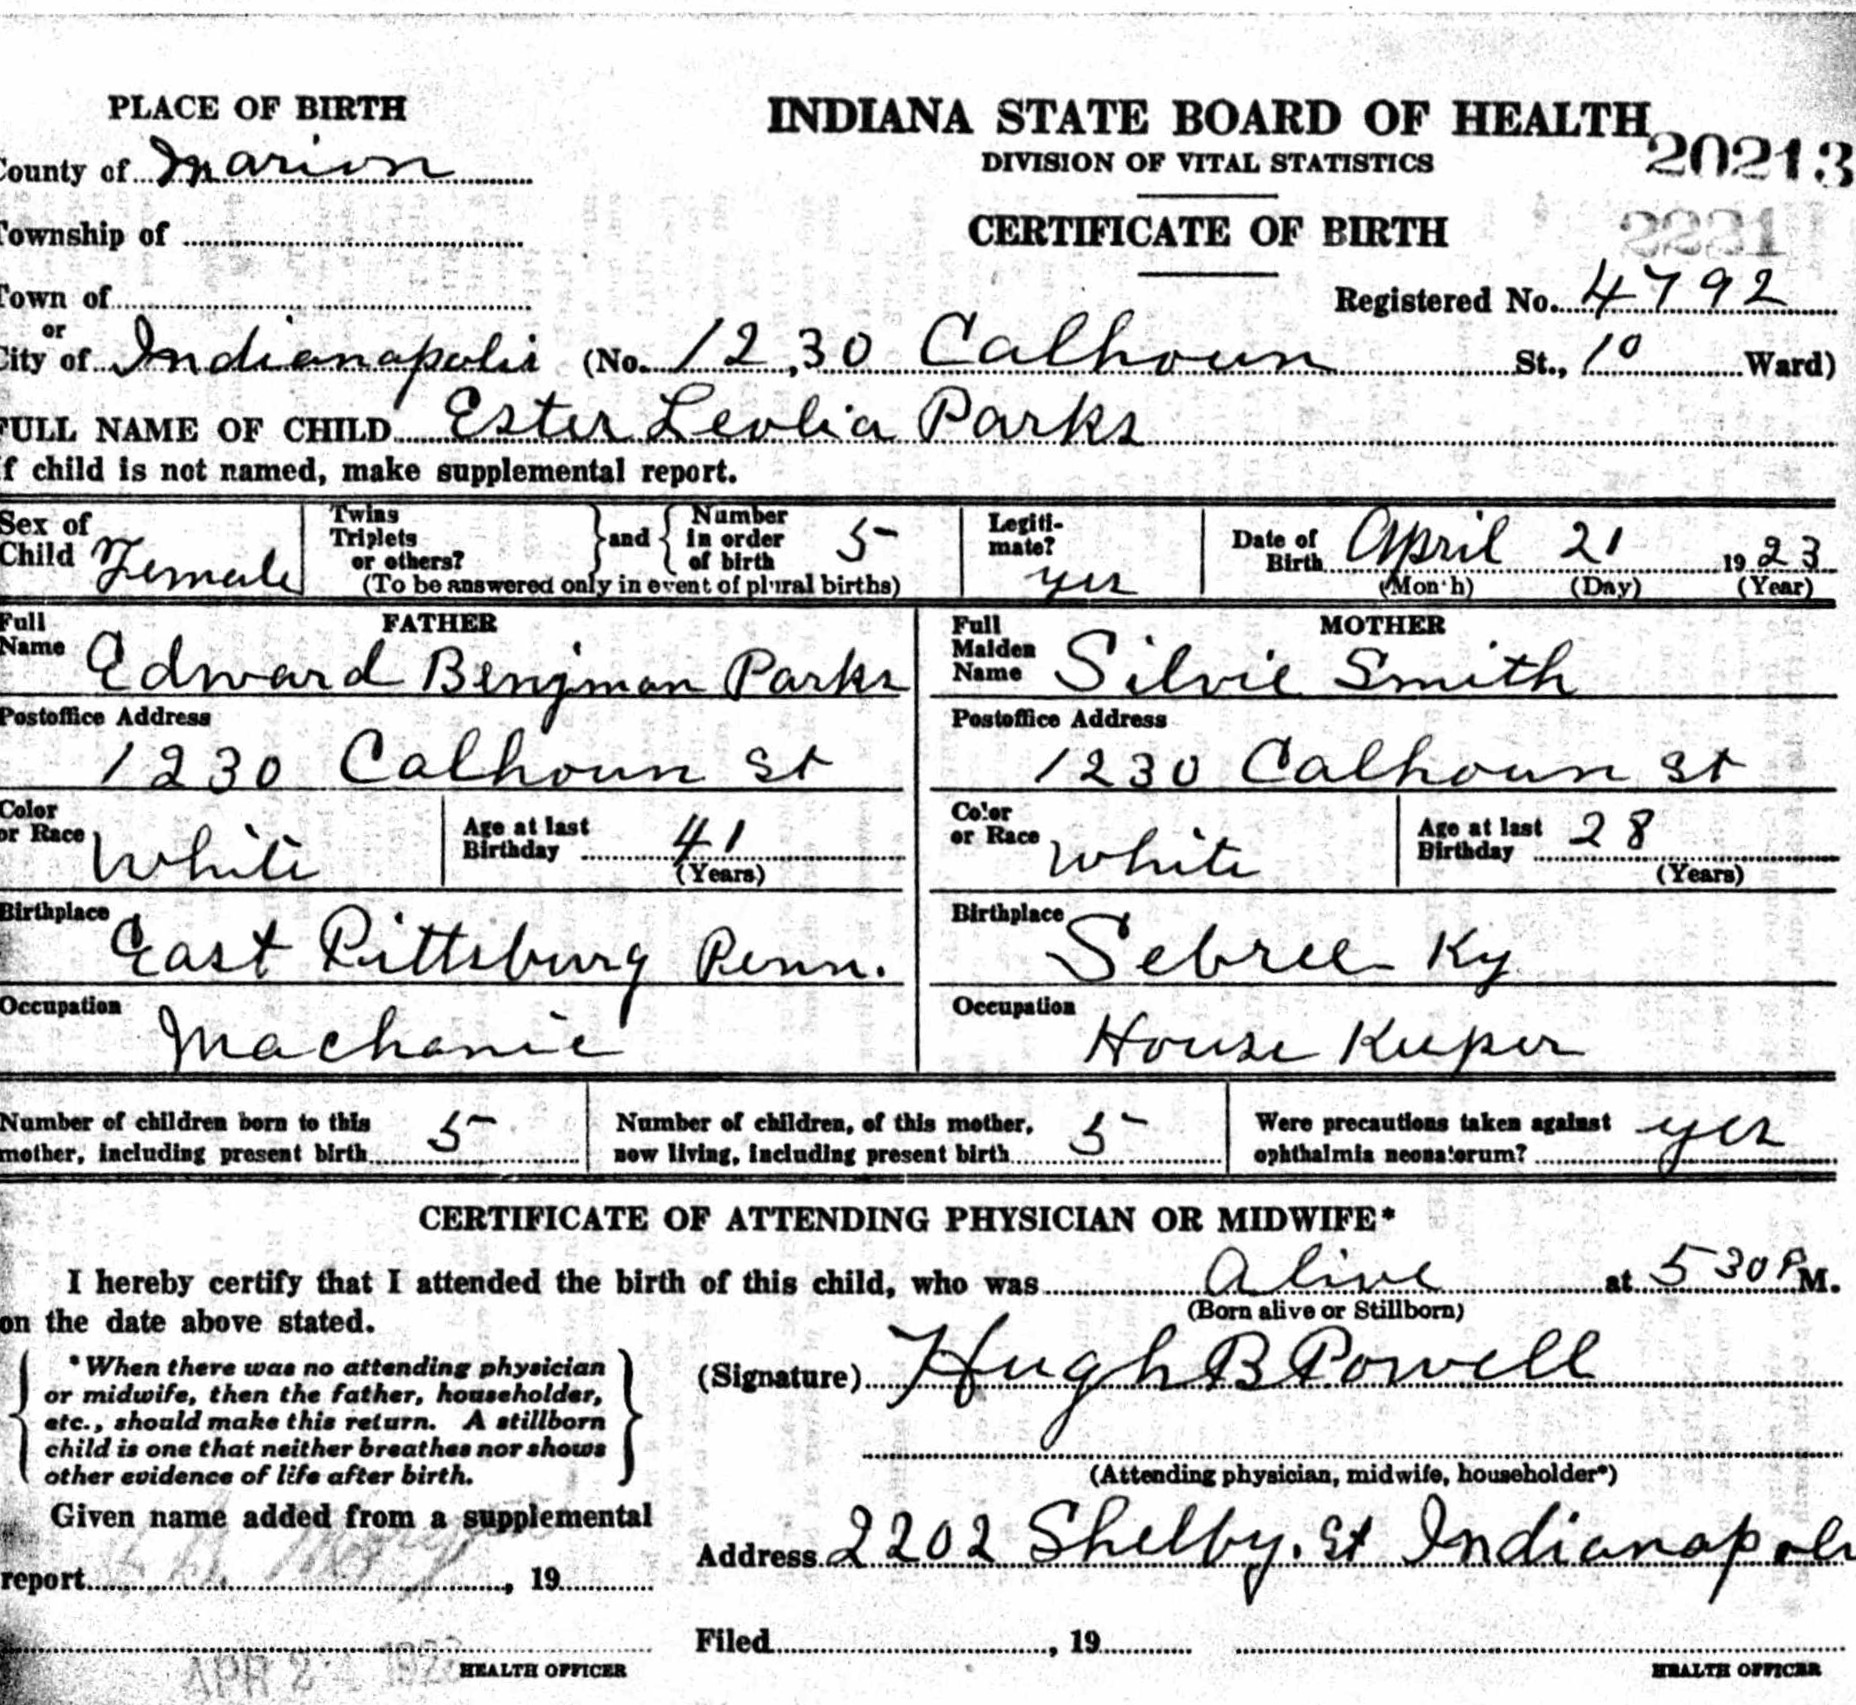 PLACE OF BIRTH
INDIANA STATE BOARD OF HEALTH
20213
DIVISION OF VITAL STATISTICS
County of Marion
Township of
CERTIFICATE OF BIRTH
2221
Town of
Registered No. 4792
or
City of Indianapolis (No. 1230 Calhoun St., 10 Ward)
FULL NAME OF CHILD Ester Leolia Parks
If child is not named, make supplemental report.
Sex of Child Female
Twins Triplets or others? and Number in order of birth 5
(To be answered only in event of plural births)
Legiti-mate? yes
Date of Birth April 21 1923
(Month) (Day) (Year)
FATHER
Full Name Edward Benjman Parks
MOTHER
Full Maiden Name Silvie Smith
Postoffice Address
1230 Calhoun St
Postoffice Address
1230 Calhoun St
Color or Race White
Age at last Birthday 41
(Years)
Color or Race White
Age at last Birthday 28
(Years)
Birthplace East Pittsburg Penn.
Birthplace Sebree Ky
Occupation Machanic
Occupation House Keeper
Number of children born to this mother, including present birth 5
Number of children, of this mother, now living, including present birth 5
Were precautions taken against ophthalmia neonatorum? yes
CERTIFICATE OF ATTENDING PHYSICIAN OR MIDWIFE*
I hereby certify that I attended the birth of this child, who was Alive at 5 30 P M.
(Born alive or Stillborn)
on the date above stated.
*When there was no attending physician
or midwife, then the father, householder,
etc., should make this return. A stillborn
child is one that neither breathes nor shows
other evidence of life after birth.
(Signature) Hugh B Powell
(Attending physician, midwife, householder*)
Given name added from a supplemental
report , 19
Address 2202 Shelby. St Indianapolis
Filed , 19
APR
HEALTH OFFICER
HEALTH OFFICER